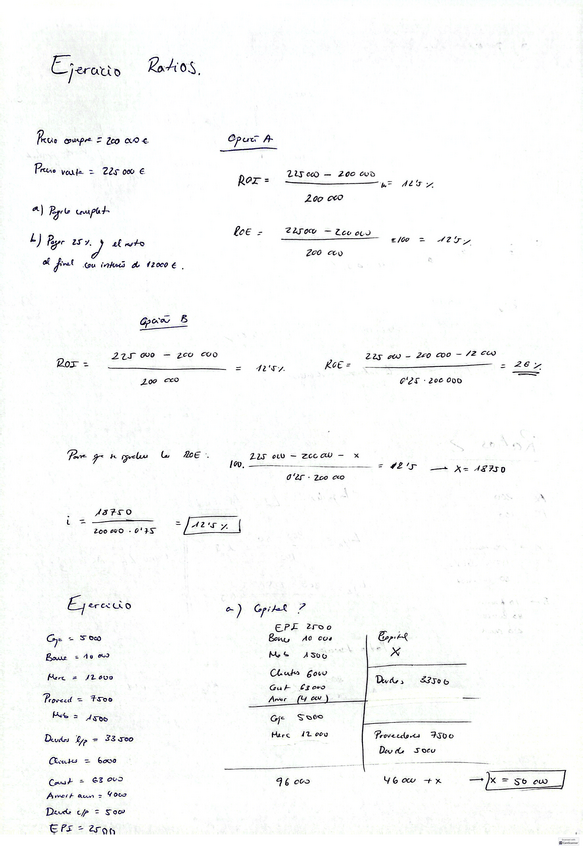 Ejercicio Ratios.
Precio compra = 200 000 €
Precio venta = 225 000 €
a) Pagarlo completo
b) Pagar 25 % y el resto
al final con interés de 12000 €.
Opción A
ROI = 225 000 - 200 000 / 200 000 = 12'5 %
ROE = 225000 - 200 000 / 200 000 x100 = 12'5 %
Opción B
ROI = 225 000 - 200 000 / 200 000 = 12'5 %
ROE = 225 000 - 200 000 - 12 000 / 0'25 · 200 000 = 26 %
Para que se igualen los ROE: 100. 225 000 - 200 000 - x / 0'25 · 200 000 = 12'5 → x = 18750
i = 18750 / 200 000 · 0'75 = 12'5 %
Ejercicio
Caja = 5 000
Banco = 10 000
Merc = 12 000
Proveed = 7500
Mob = 1500
Deudas l/p = 33 500
Clientes = 6000
Const = 63 000
Amort acum = 4000
Deuda c/p = 5000
EPI = 2500
a) Capital ?
EPI 2500
Banco 10 000
Mob 1500
Clientes 6000
Const 63 000
Amor (4 000)
Caja 5000
Merc 12 000
96 000
Capital
X
Deudas 33500
Proveedores 7500
Deuda 5000
46 000 + x → x = 50 000